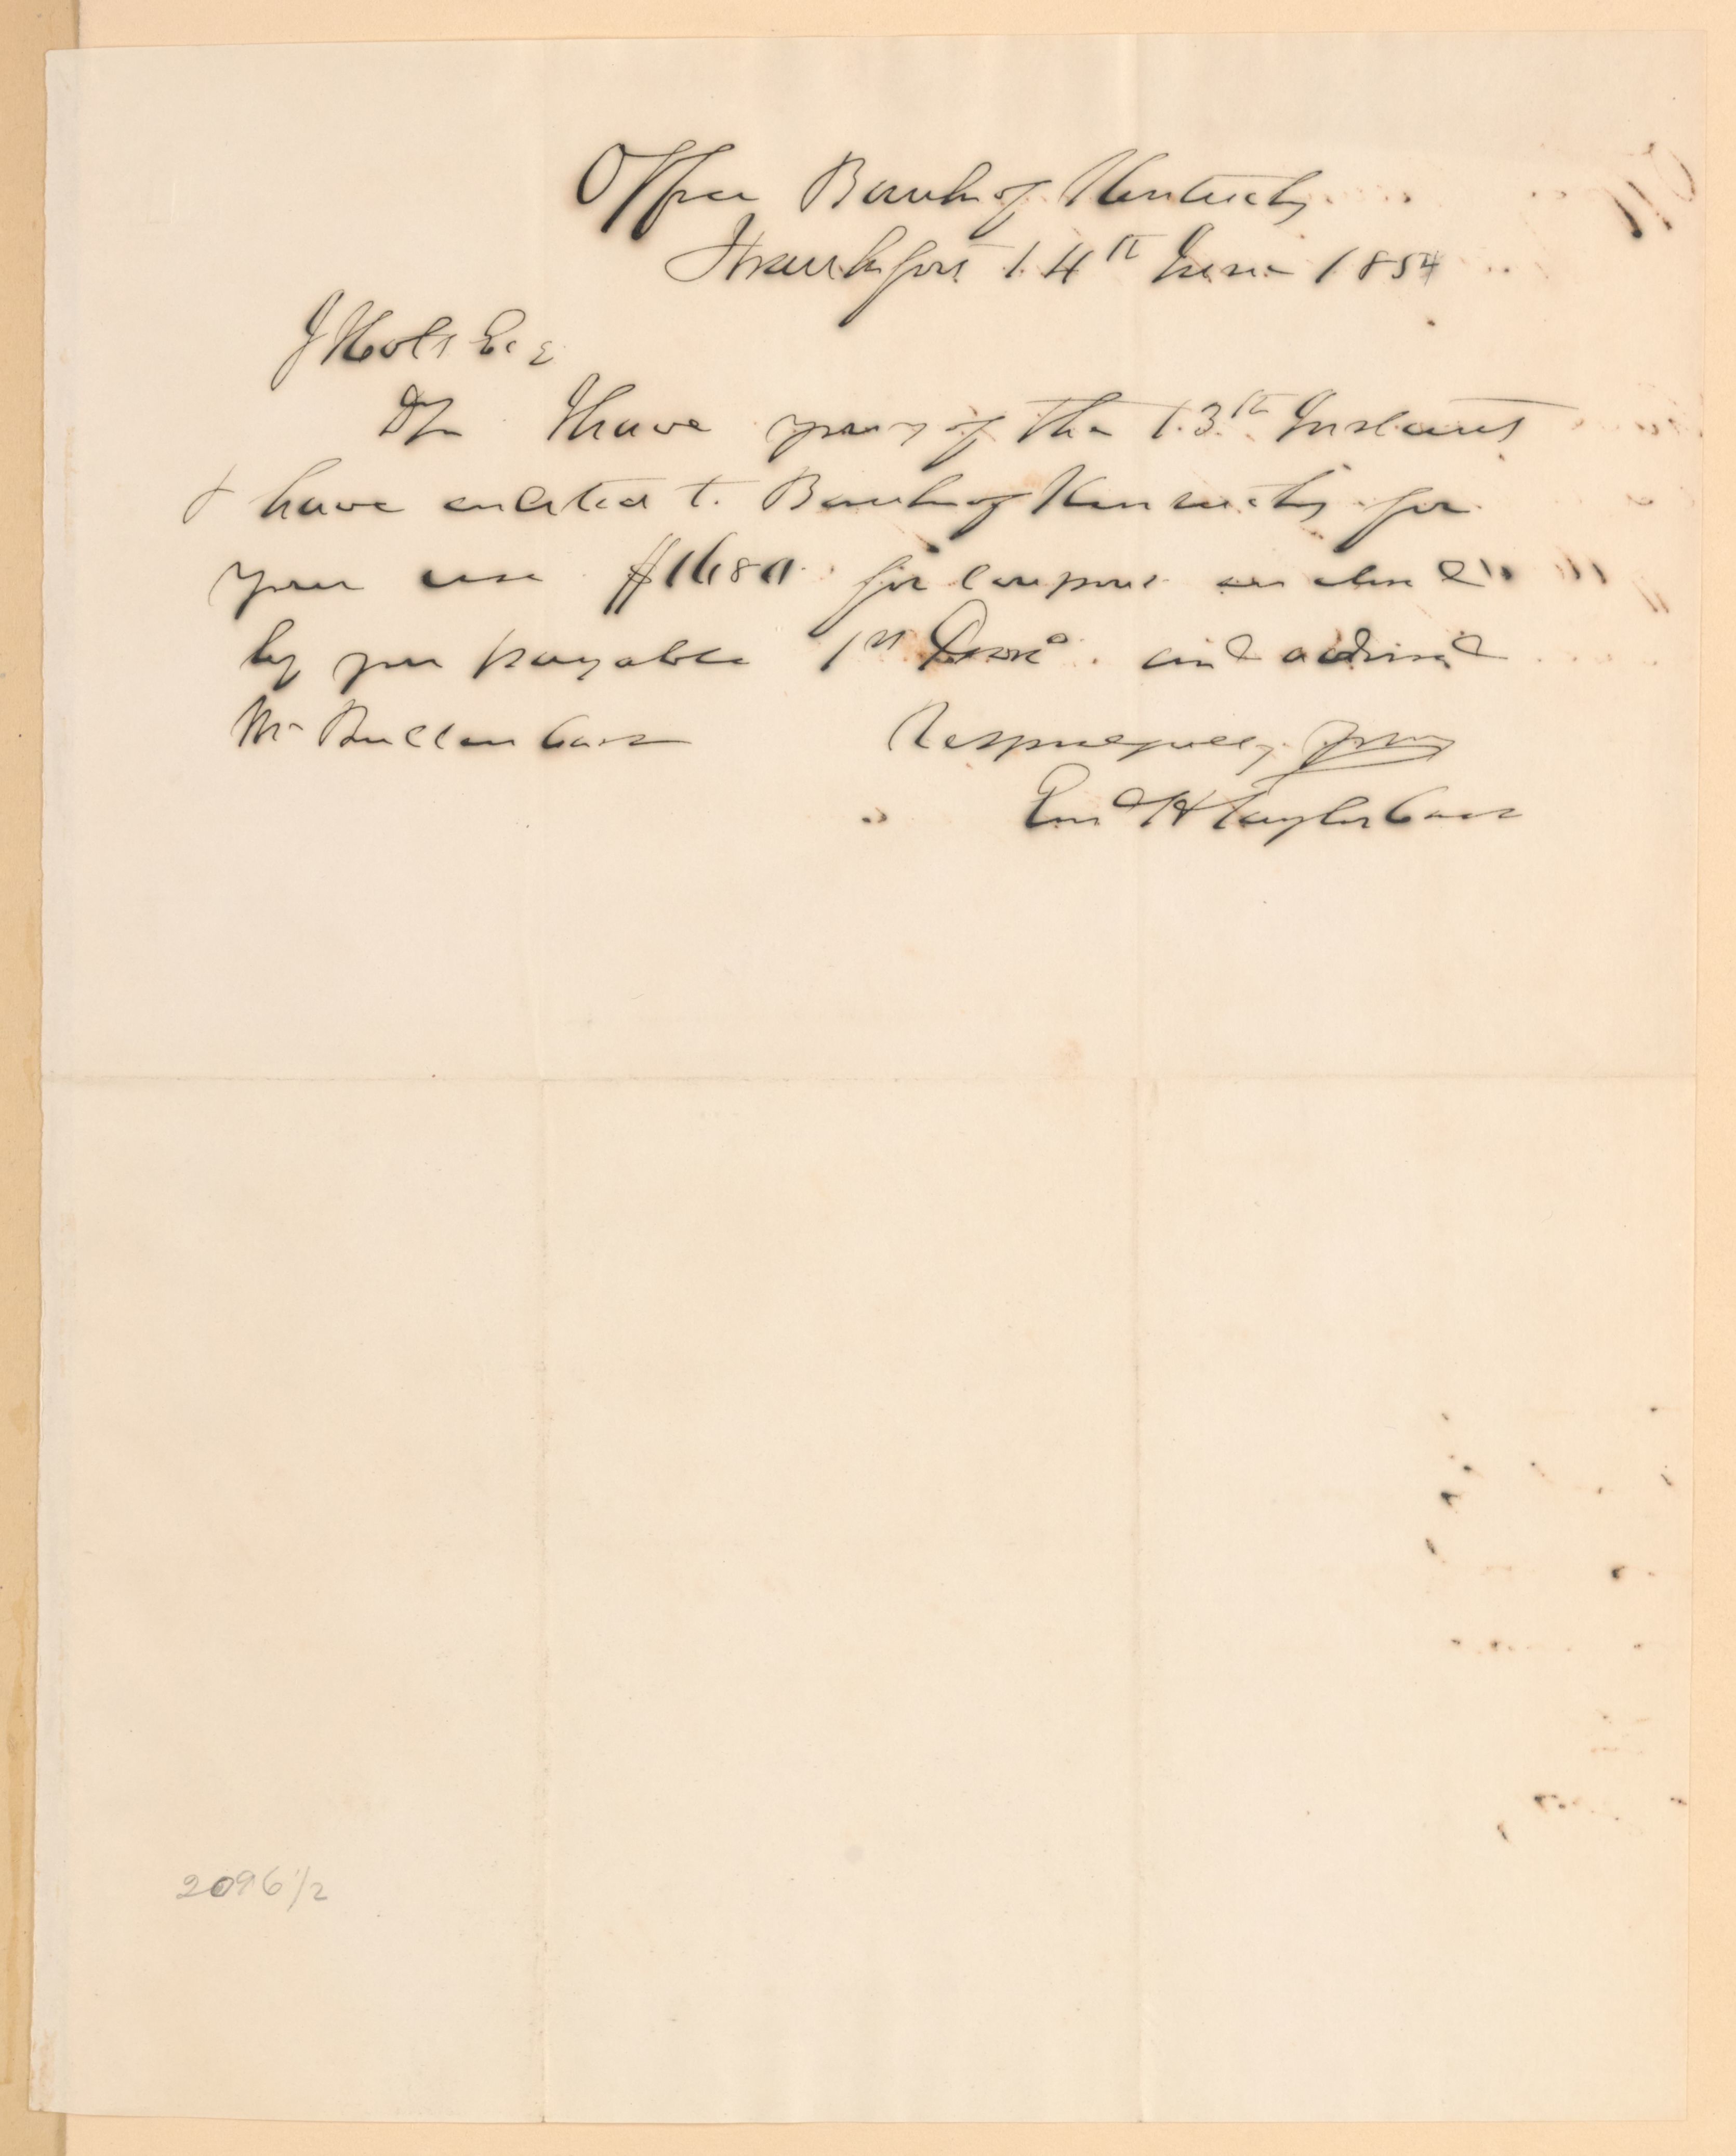 Office Bank of Kentucky
Frankfort 14th June 1854
J Holt Esq
Dr Sir I have yours of the 13th Instant
& have credited to Bank of Kentucky for
your use $1680 for coupons enclosed
by you payable 1st and advised
Mr Bullen Cash
Respectfully yours
Edmd H Taylor Cash
2096 1/2